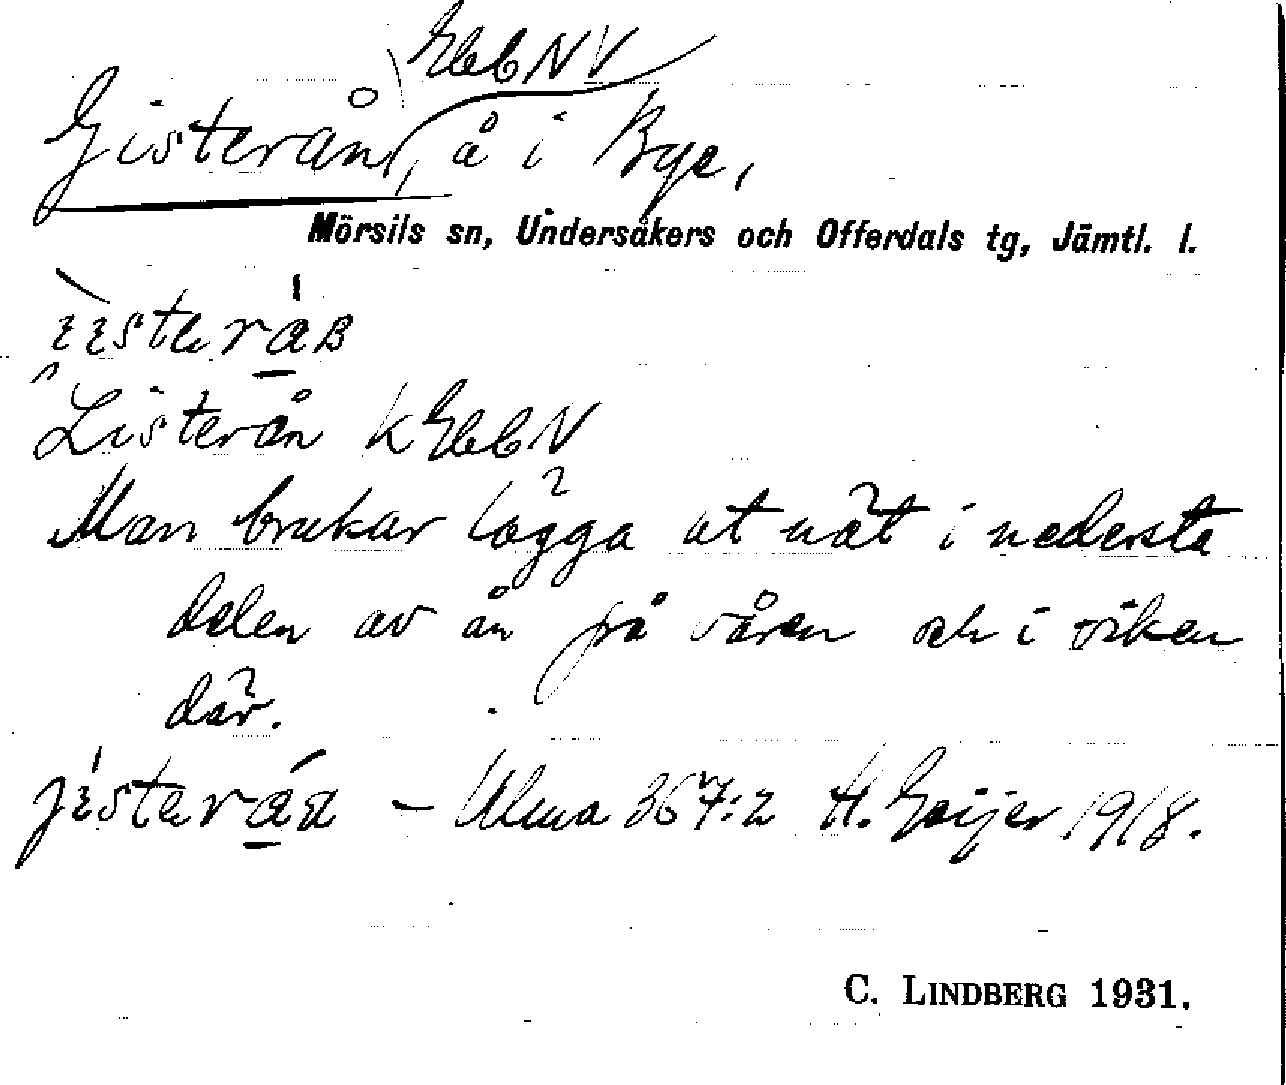 EkbNV
Gisterån, å i Bye,
Mörsils sn, Undersåkers och Offerdals tg, Jämtl. l.
Listerån k EkbN
Man brukar lägga ut nät i nedersta
delen av ån på våren och i viken
där.
– Ulma 367:2 H. Geijer 1918.
C. LINDBERG 1931.